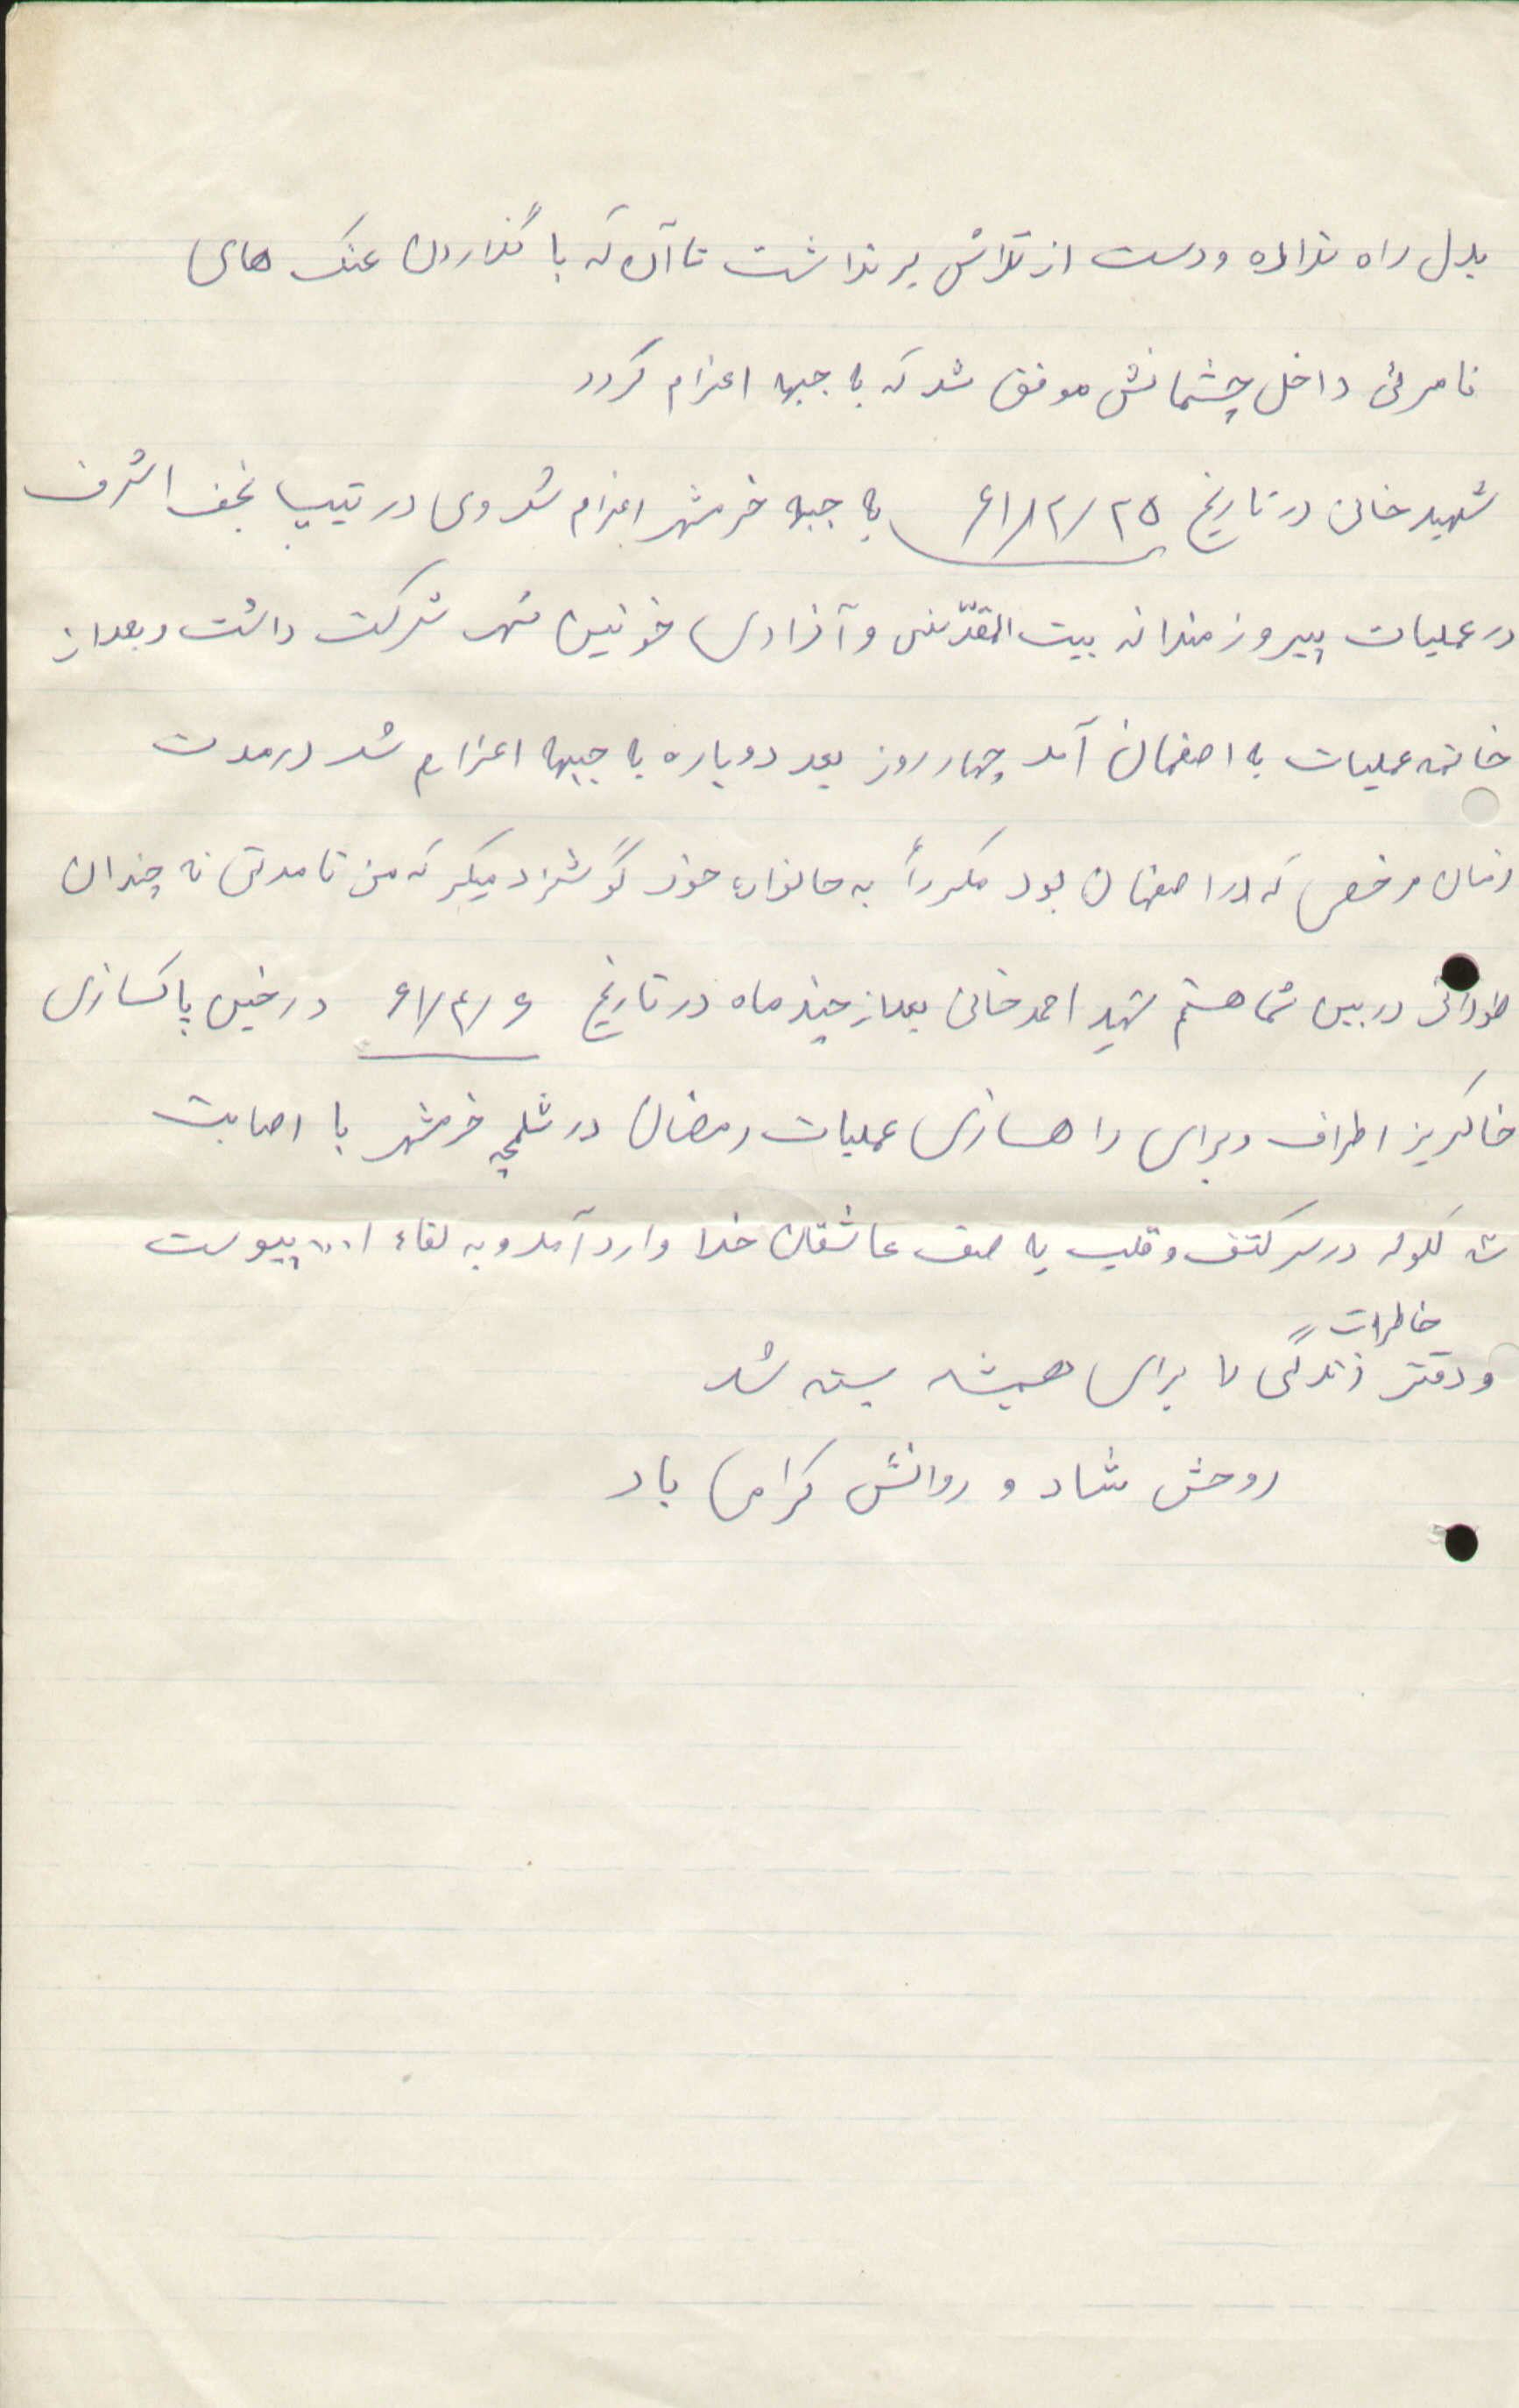 بدل راه نداده و دست از تلاش بر نداشت تا آن که با گذاردن عینک های
نامرئی داخل چشمانش موفق شد که به جبهه اعزام گردد
شهید خانی در تاریخ ۶۱/۲/۲۵ به جبهه خرمشهر اعزام شد وی در تیپ نجف اشرف
در عملیات پیروزمندانه بیت المقدّس و آزادی خونین شهر شرکت داشت و بعد از
خاتمه عملیات به اصفهان آمد چهار روز بعد دوباره به جبهه اعزام شد در مدت
زمان مرخصی که در اصفهان بود مکرراً به خانواده خود گوشزد میکرد که من تا مدتی نه چندان
طولانی در بین شما هستم شهید احمد خانی بعد از چند ماه در تاریخ ۶۱/۴/۶ در حین پاکسازی
خاکریز اطراف و برای راهسازی عملیات رمضان در شلمچه خرمشهر با اصابت
سه گلوله در سر کتف و قلب به صف عاشقان خدا وارد آمد و به لقاء ا... پیوست
خاطرات
و دفتر زندگی برای همیشه بسته شد
روحش شاد و روانش گرامی باد